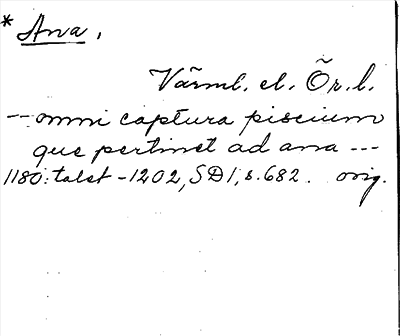 * Ana.
Värml. el. Ör. l.
-- omni captura piscium
que pertinet ad ana ---
1180: talet - 1202, SD 1, s. 682. orig.